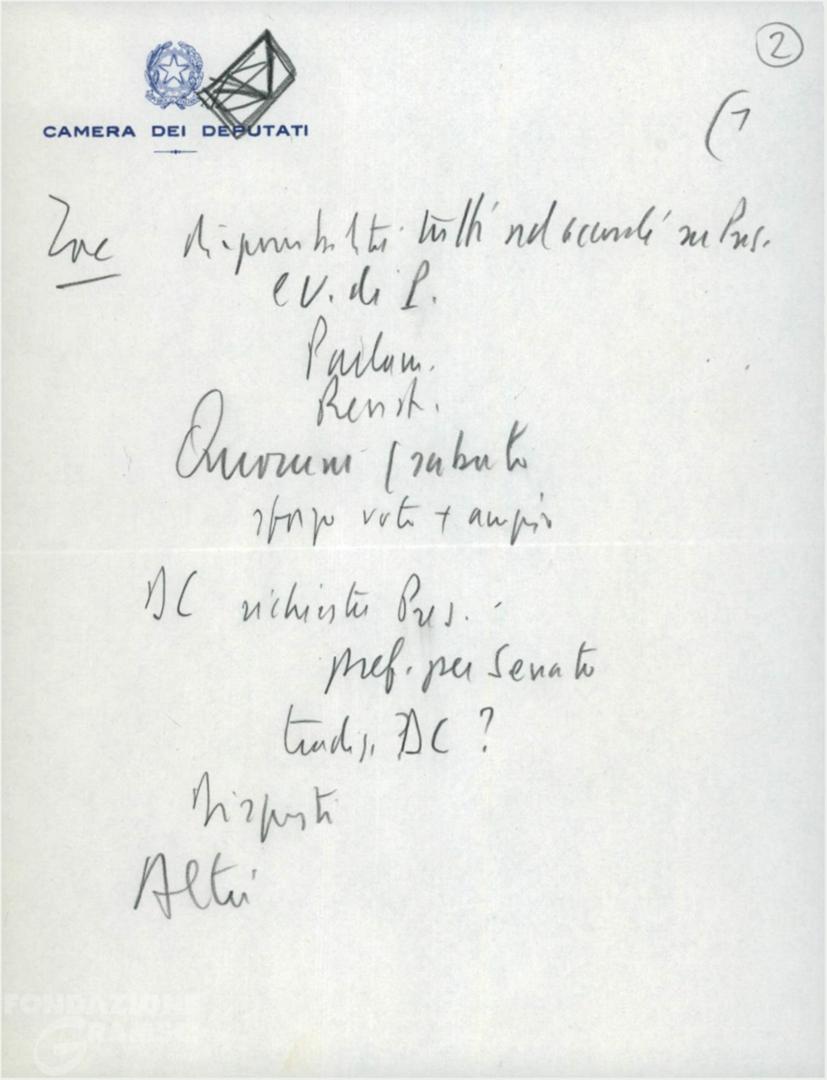 2
CAMERA DEI DEPUTATI
(7
Zac disponibilità tutti ad accordi su Pres.
e V. di P.
Parlam.
Quorum
sforzo voto + ampio
DC richiesta Pres.
pref. per Senato
tradiz. DC ?
Risposta
Altri
FONDAZIONE
CRAXI